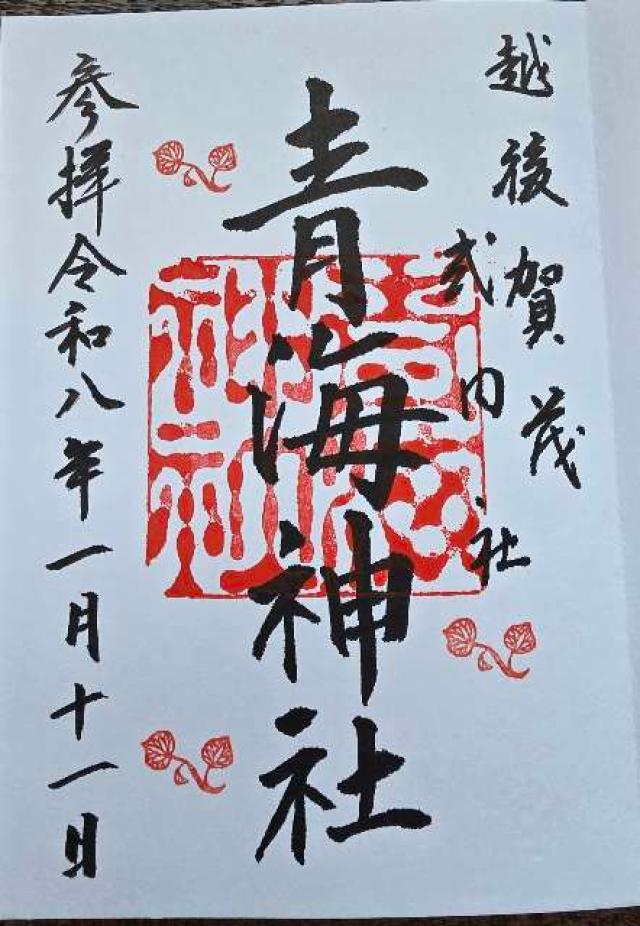 越後賀茂
式内社
青海神社
参拝令和八年一月十一日